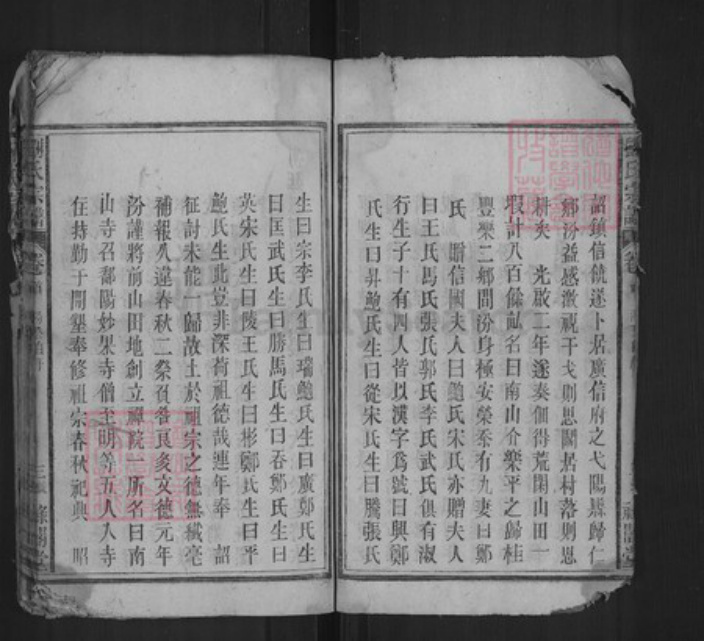 詔鎮信饒遂卜居廣信府之弋陽縣歸仁
鄉汾益感激視干戈則思關居村落則思
耕矣　光啟二年遂奏佃得荒閑山田一
段計八百餘畝名曰南山介樂平之歸桂
豐樂二鄉間汾身極安榮奉有九妻曰鄭
氏　贈信國夫人曰鮑氏宋氏亦贈夫人
曰王氏馬氏張氏郭氏李氏武氏俱有淑
行生子十有四人皆以漢字為號曰興鄭
氏生曰昇鮑氏生曰從宋氏生曰騰張氏
生曰宗李氏生曰瑞鮑氏生曰廣鄭氏生
曰匡武氏生曰勝馬氏生曰吞鄭氏生曰
英宋氏生曰陵王氏生曰彬鄭氏生曰平
鮑氏生此豈非深荷祖德哉連年奉　詔
征討未能一歸故土於祖宗之德無纖毫
補報久違春秋二祭負咎良多文德元年
汾謹將前山田地創立禪院一所名曰南
山寺召鄱陽妙果寺僧主明等五人入寺
住持勤于開墾奉修祖宗春秋祀典　昭
氏宗譜
卷